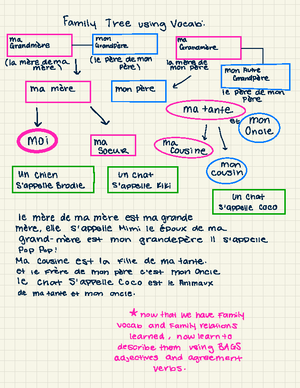 Family Tree using Vocab:
ma
Grandmère
mon
Grandpère
ma
Grandmère
mon Autre
Grandpère
(la mère de ma
mère)
(le père de mon
père)
(la mère de
mon père
le père de mon
Père
ma mère
mon père
ma tante
et
mon
Oncle
moi
ma
Soeur
ma
Cousine
mon
cousin
un Chien
S'appelle Brodie
un Chat
S'appelle Kiki
un Chat
S'appelle Coco
le mère de ma mère est ma grande
mère, elle s'appelle Mimi le époux de ma
grand-mère est mon grandepère Il s'appelle
Pop Pop!
Ma cousine est la fille de ma tante.
et le frère de mon père c'est mon oncle
le chat S'appelle Coco est le Animaux
de ma tante et mon oncle.
* now that we have Family
vocab and Family relations
learned, now learn to
describe them using BAGS
adjectives and agreement
verbs.